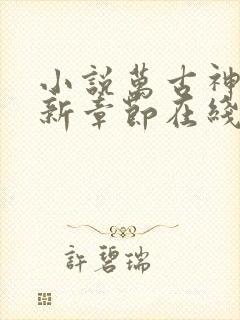 小說萬古神
新章節在綫
許碧瑞